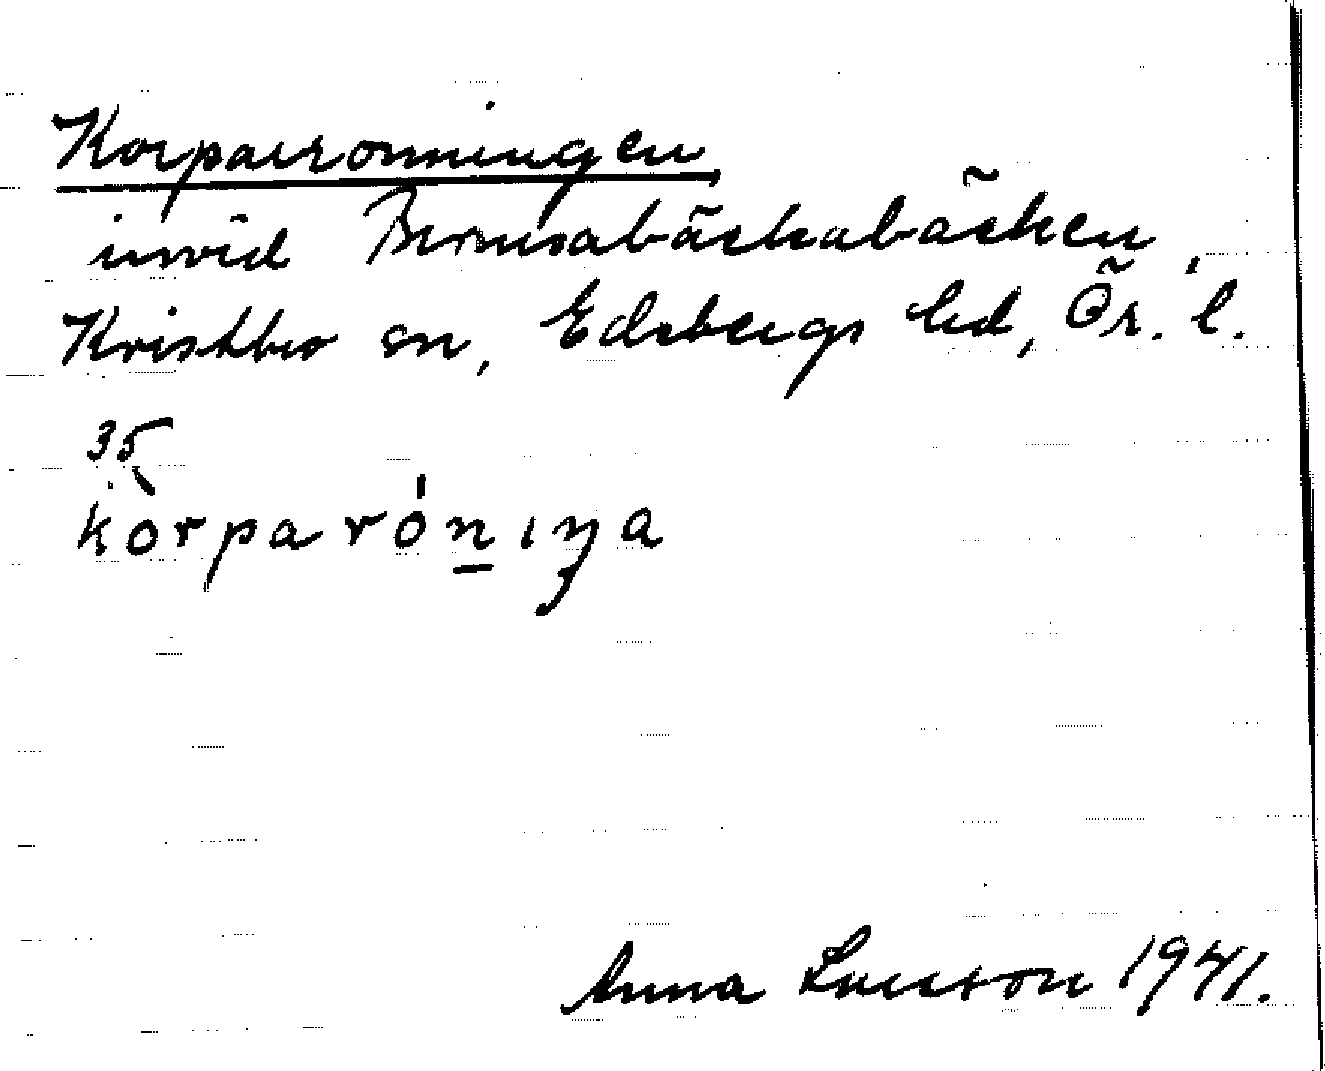 Korparonningen
invid bäckabäcken,
Kvistbro sn, Edsbergs hd, Ör. l.
35
kòrparón̲ıŋa
Anna Larsson 1941.